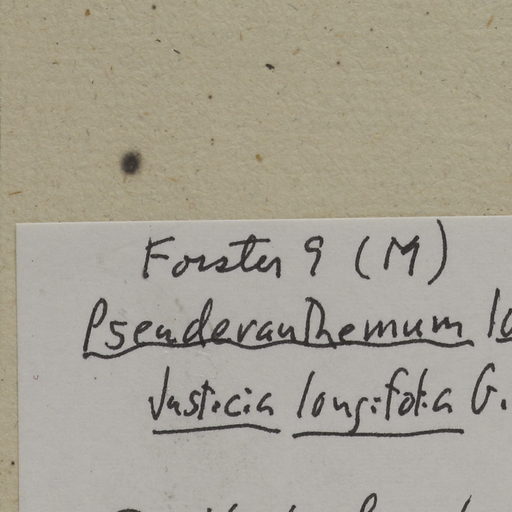 Forster 9 (M)
Pseuderanthemum lo
Justicia longifolia G.